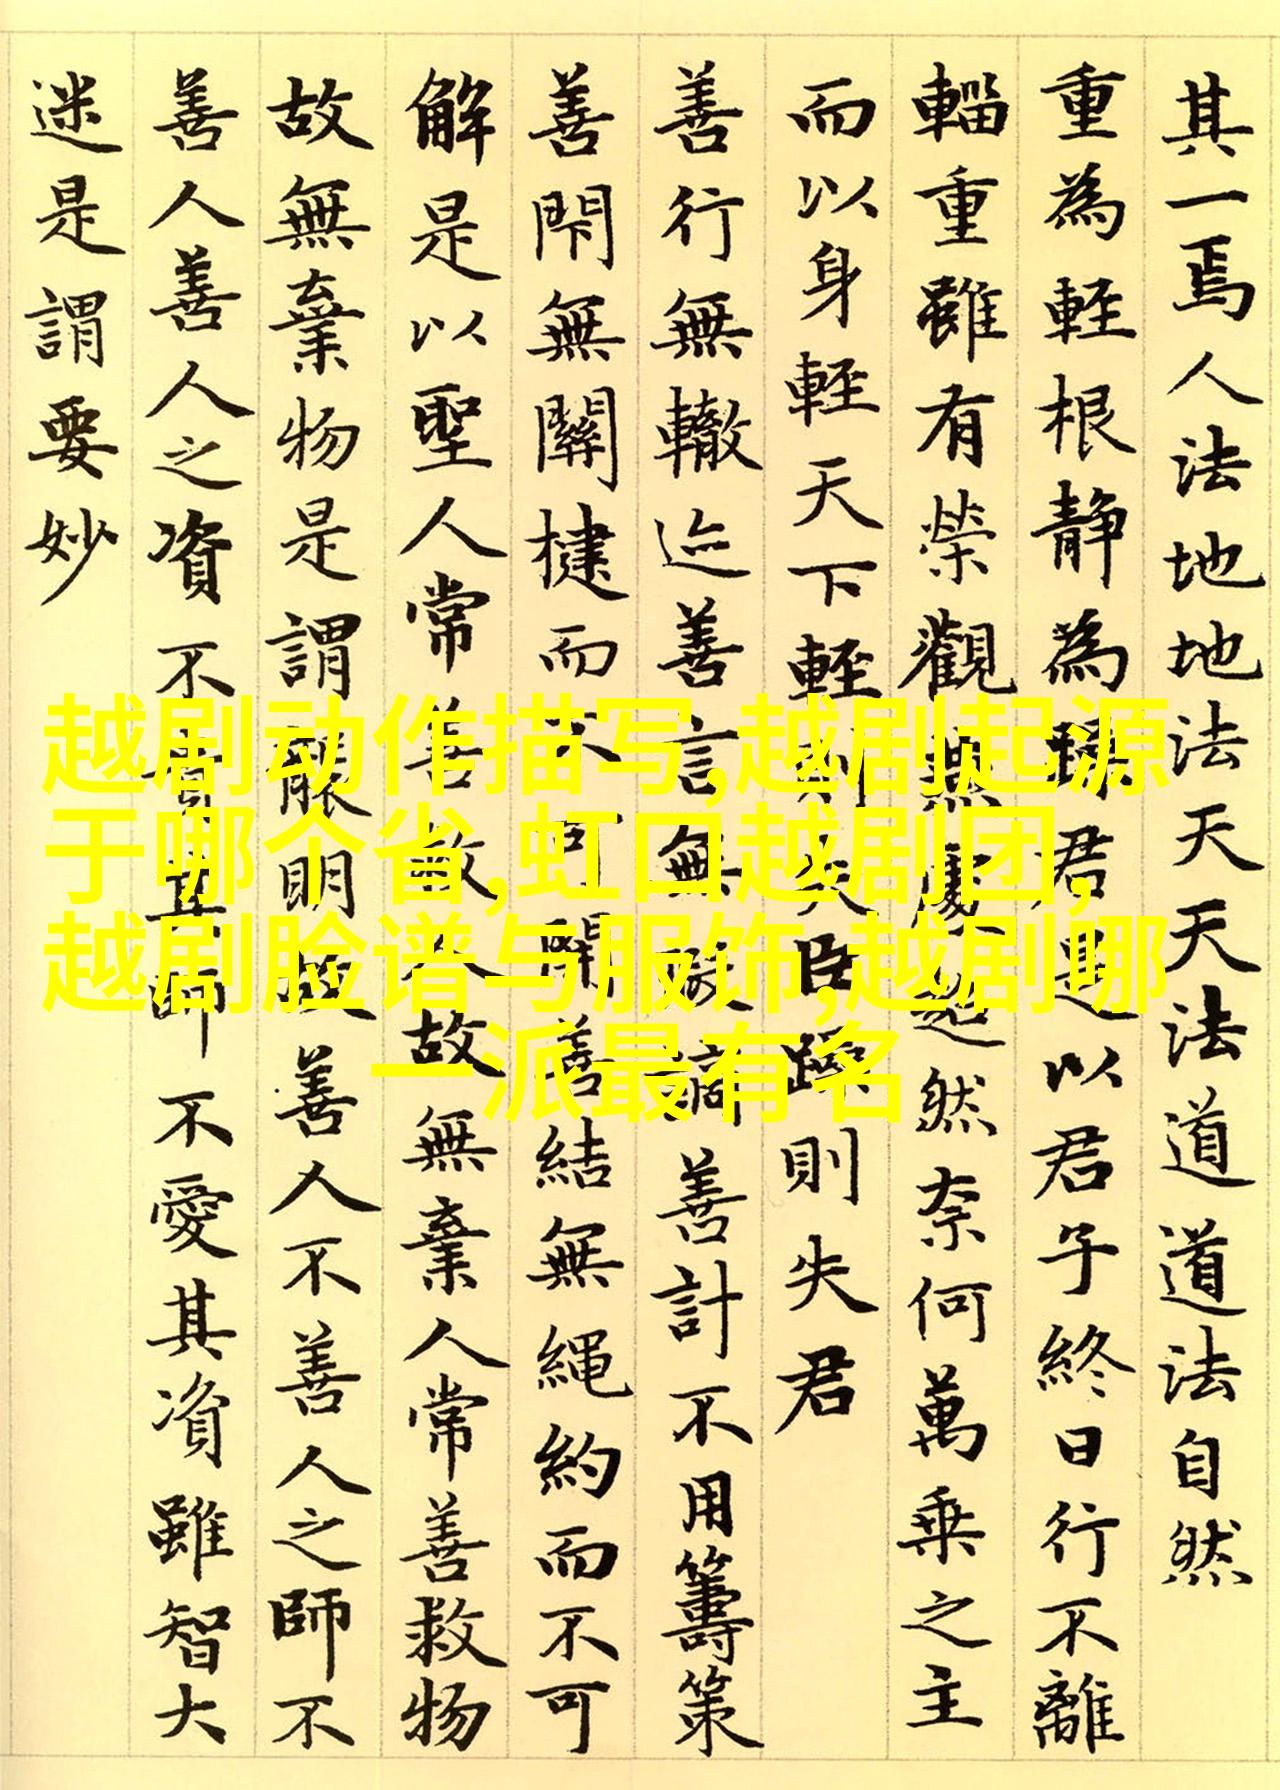 其一焉人法地地法天天法道道法自然
重為輕根静為躁君是以君子終日行不離
輜重雖有榮觀燕處超然奈何萬乘之主
而以身輕天下輕則失臣躁則失君
善行無轍迹善言無瑕謫善計不用籌策
善閇無關楗而不可開善結無繩約而不可
解是以聖人常善救人故無棄人常善救物
故無棄物是謂襲明故善人不善人之師不
善人善人之資不貴其師不愛其資雖智大
迷是謂要妙
越剧动作描写,越剧起源
于哪个省,虹口越剧团,
越剧脸谱与服饰,越剧哪
一派最有名